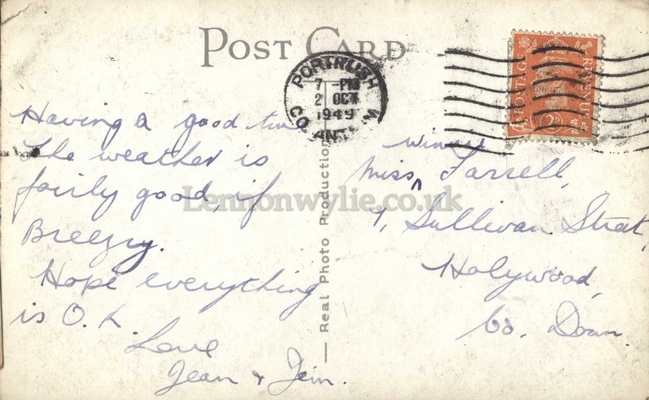 POST CARD
PORTRUSH
7 - PM
2 OCT
1949
CO. ANTRIM
POSTAGE
REVENUE
Having a good time
The weather is
fairly good, if
Breezy.
Hope everything
is O.K.
Love
Jean + Jim.
— Real Photo Production —
Miss ^ Farrell,
7, Sullivan Street,
Holywood,
Co. Down
Lennonwylie.co.uk